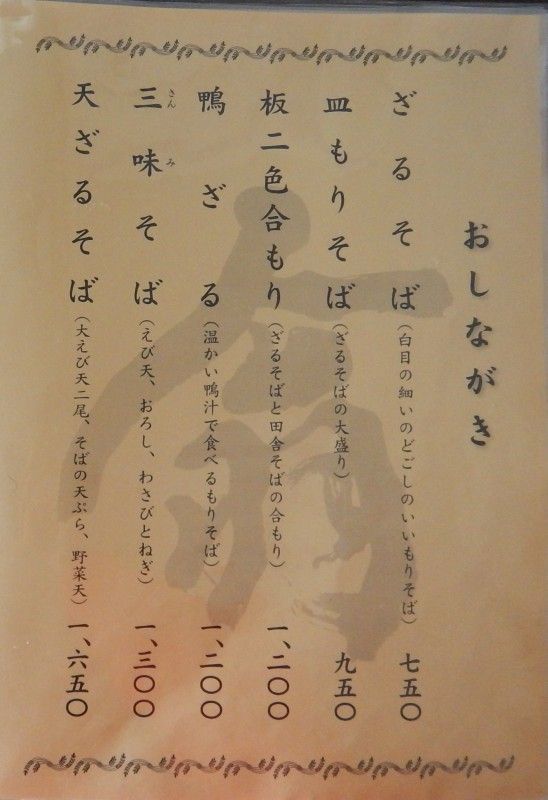 おしながき
ざるそば（白目の細いのどごしのいいもりそば） 七五〇
皿もりそば（ざるそばの大盛り） 九五〇
板二色合もり（ざるそばと田舎そばの合もり） 一、二〇〇
鴨ざる（温かい鴨汁で食べるもりそば） 一、二〇〇
三味そば（えび天、おろし、わさびとねぎ） 一、三〇〇
さん み
天ざるそば（大えび天二尾、そばの天ぷら、野菜天） 一、六五〇